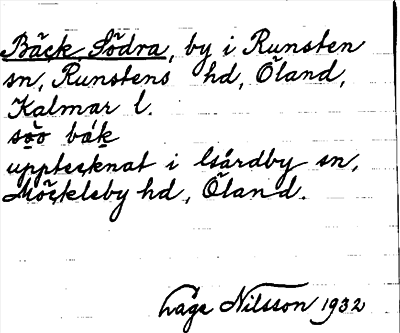 Bäck, Södra, by i Runsten
sn, Runstens hd, Öland,
Kalmar l.
söo bák
upptecknat i Gårdby sn,
Möckleby hd, Öland.
Låge Nilsson 1932